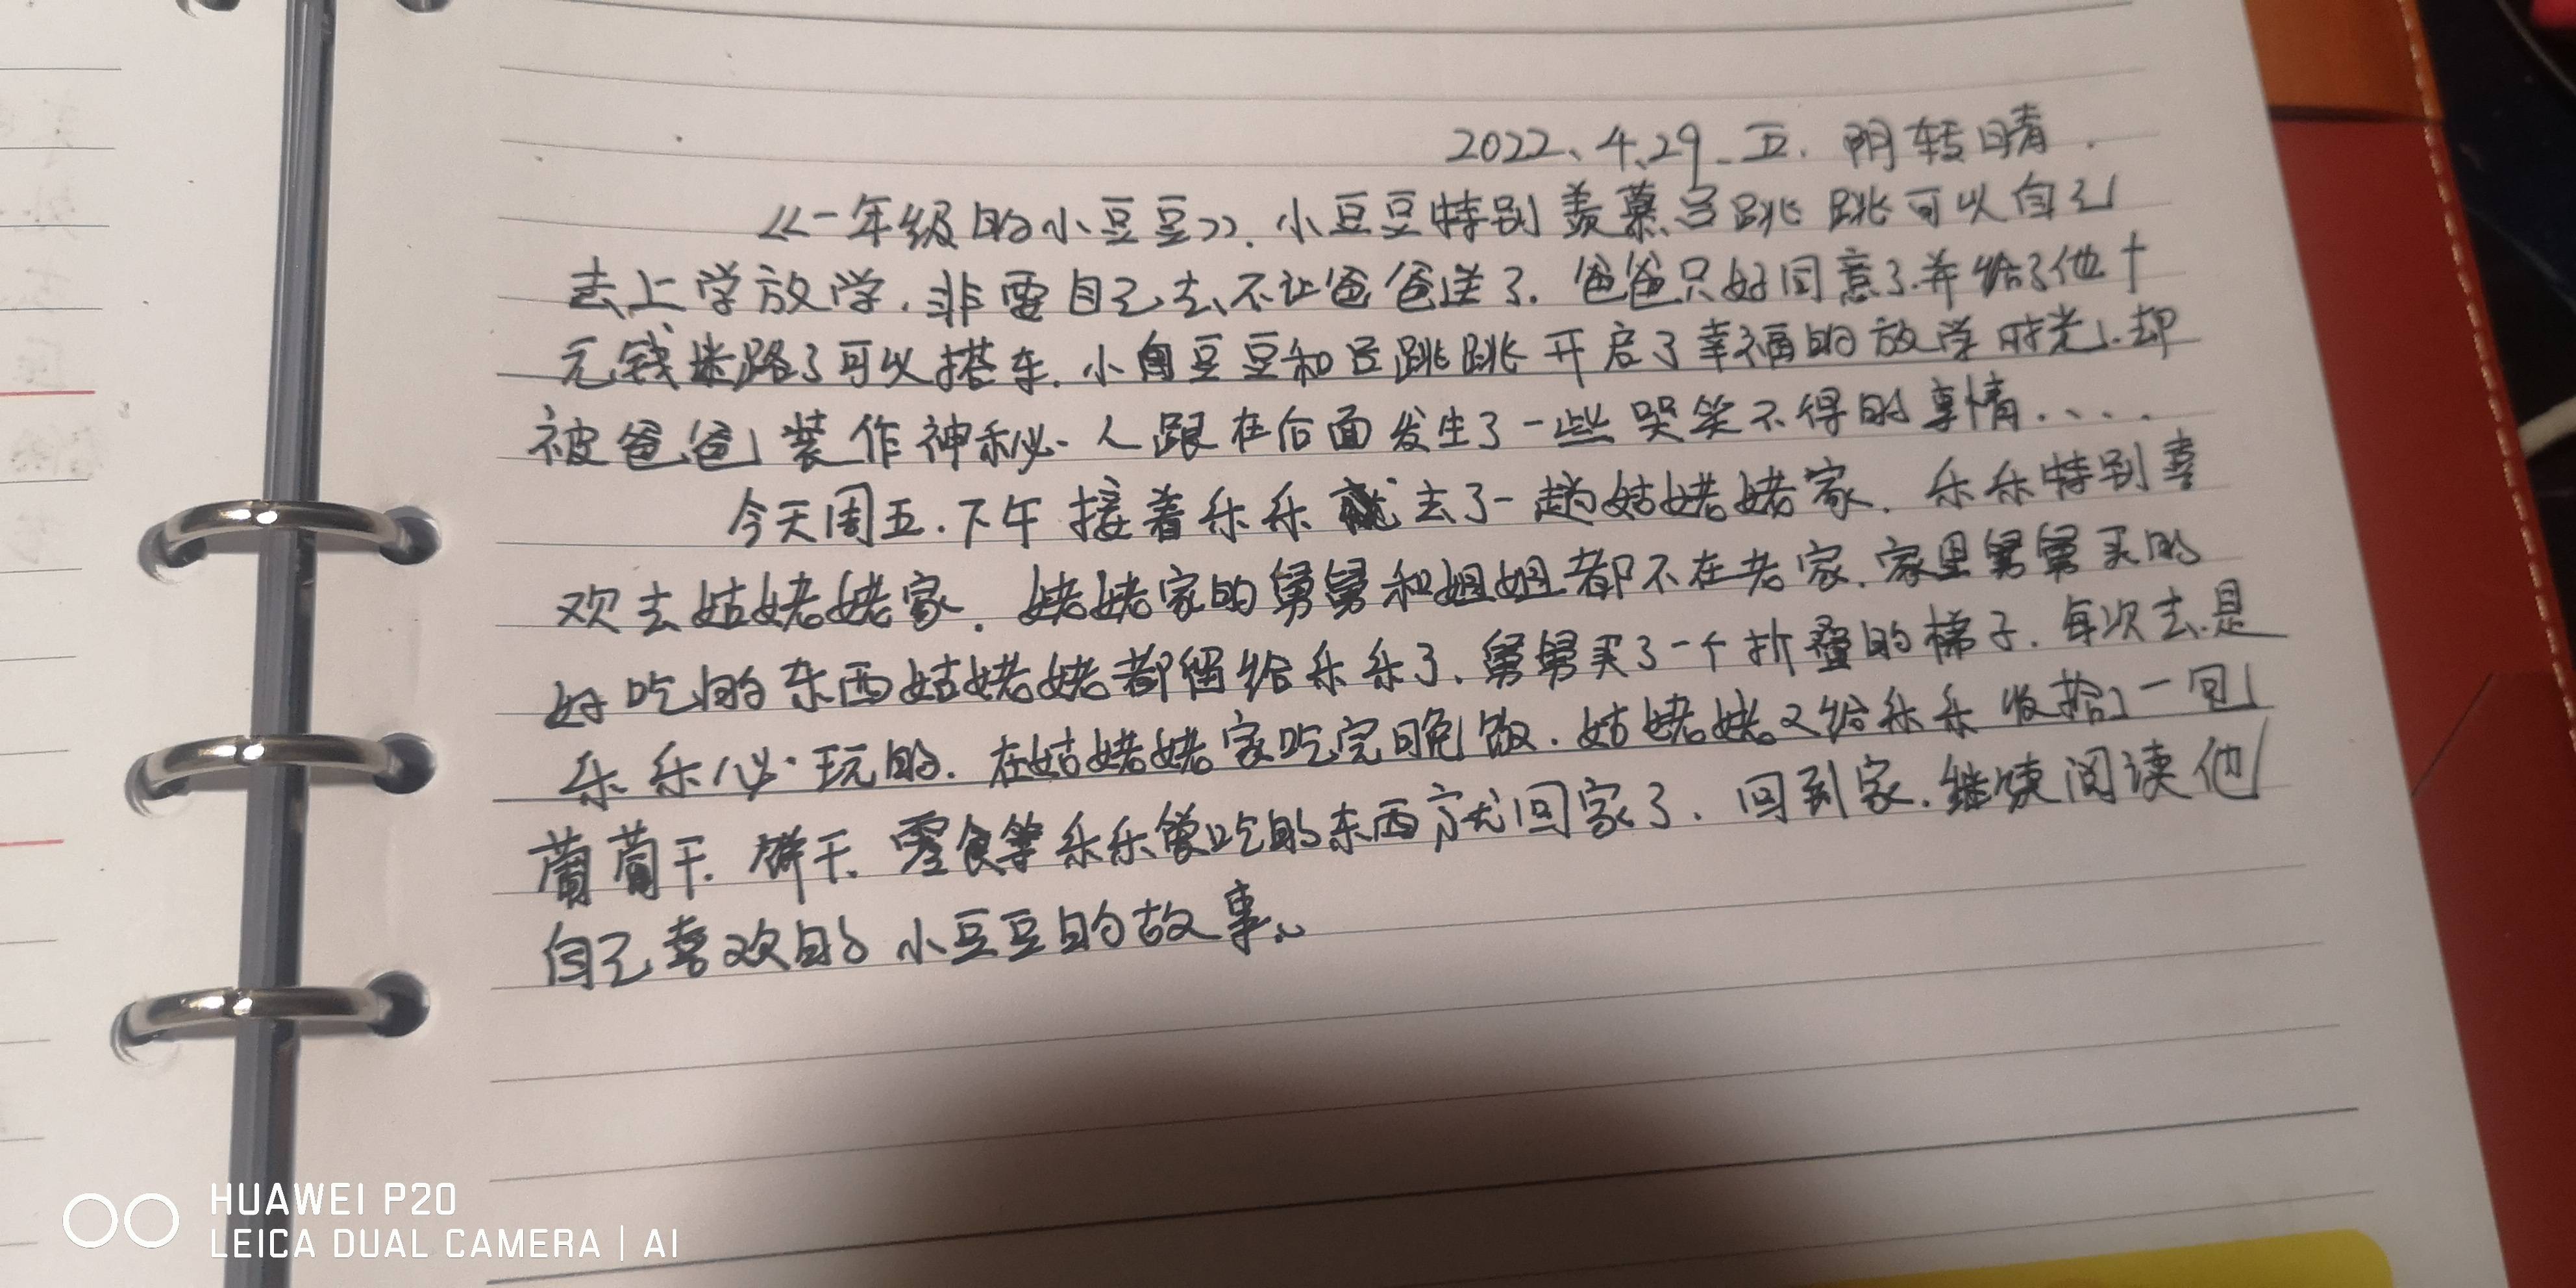 2022、4、29、五、阴转晴.
《一年级的小豆豆》.小豆豆特别羡慕吕跳跳可以自己
去上学放学.非要自己去、不让爸爸送了.爸爸只好同意了.并给了他十
元钱迷路了可以搭车.小豆豆和吕跳跳开启了幸福的放学时光、却
被爸爸装作神秘人跟在后面发生了一些哭笑不得的事情....
今天周五.下午接着乐乐就去了一趟姑姥姥家.乐乐特别喜
欢去姑姥姥家.姥姥家的舅舅和姐姐都不在老家.家里舅舅买的
好吃的东西姑姥姥都留给乐乐了.舅舅买了一个折叠的梯子.每次去是
乐乐必玩的.在姑姥姥家吃完晚饭.姑姥姥又给乐乐收拾了一包
葡萄干.饼干.零食等乐乐爱吃的东西就回家了.回到家.继续阅读他
自己喜欢的小豆豆的故事。
HUAWEI P20
LEICA DUAL CAMERA | AI